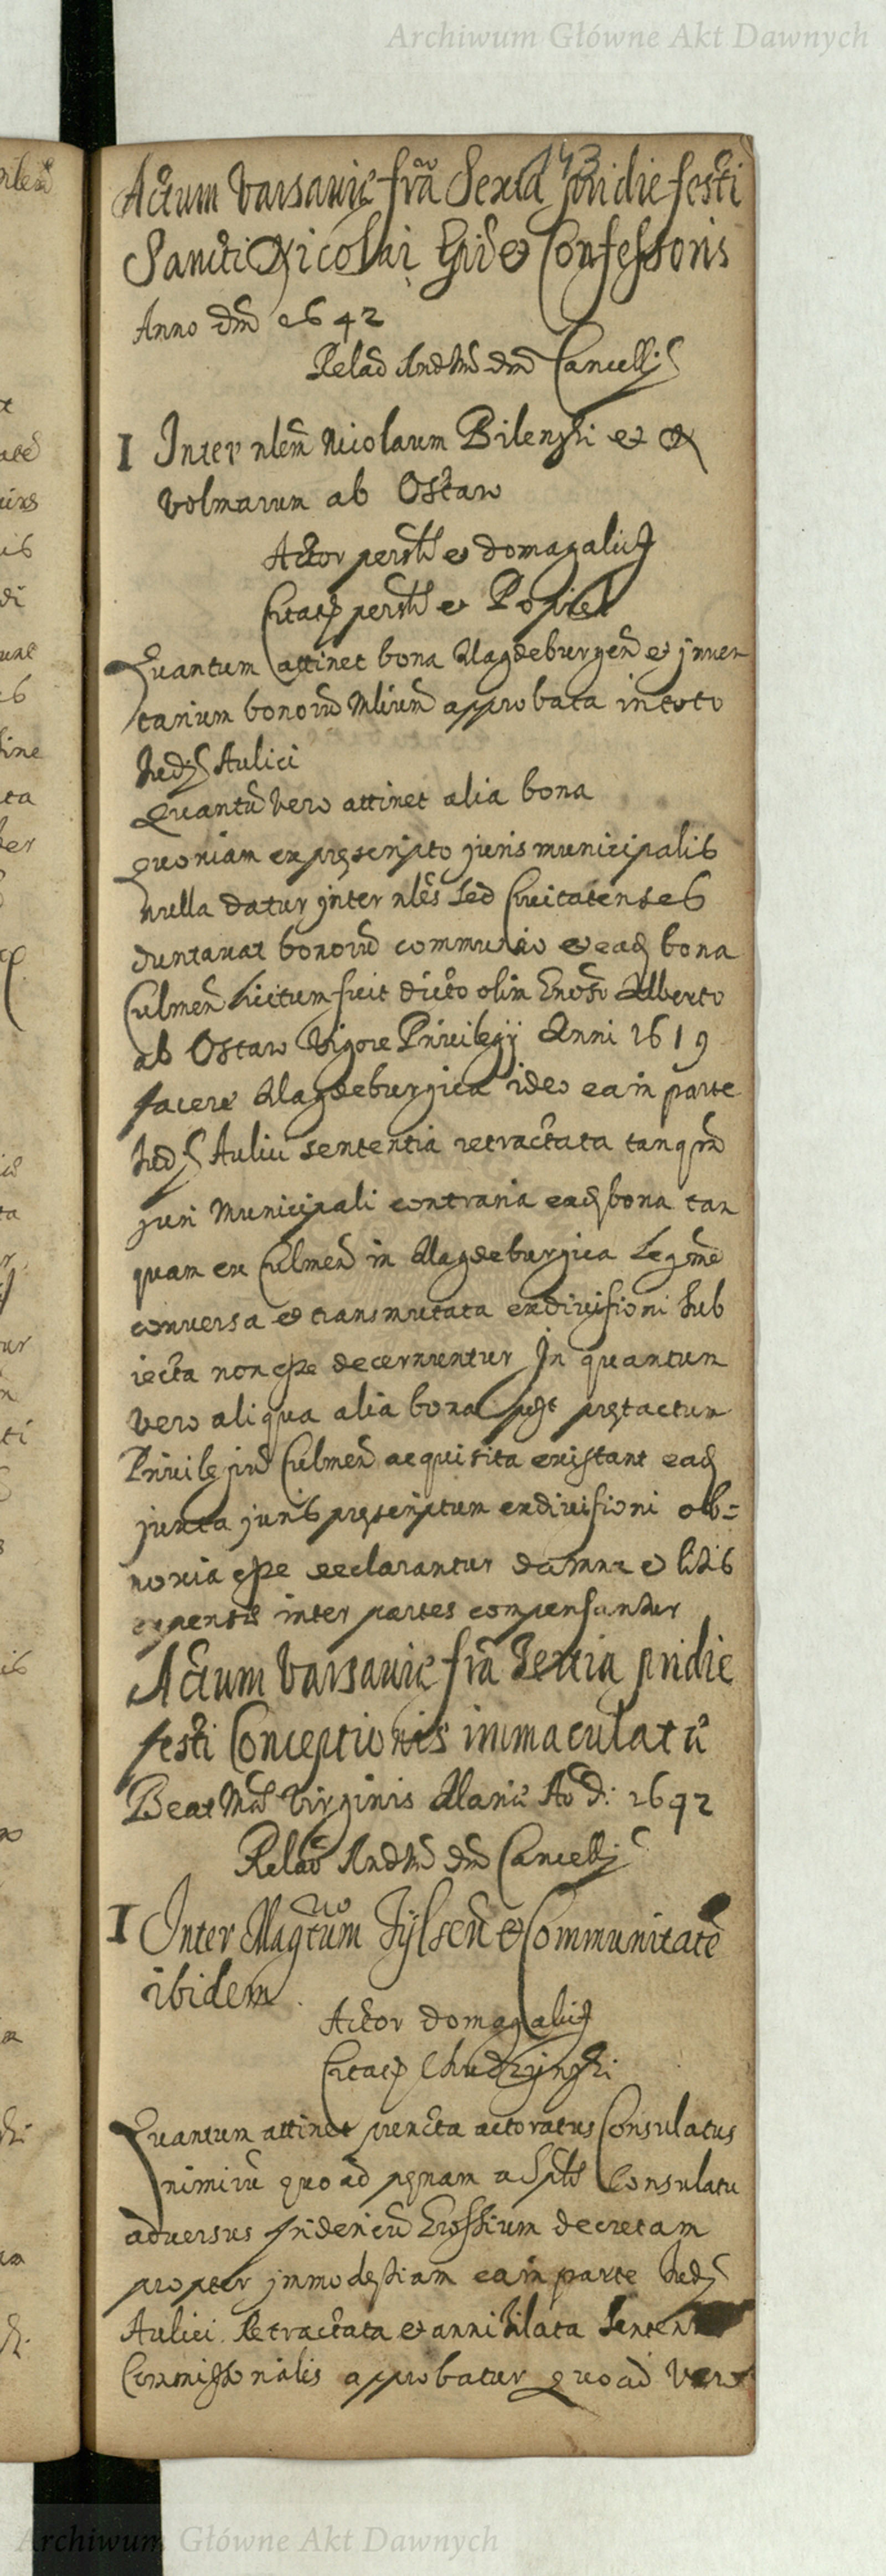 Archiwum Główne Akt Dawnych
143
Actum Varsavię fra Sexta pridie festi
Sancti Nicolai Epi et Confessoris
Anno dni 1642
Relao dni Cancellij
1 Inter nlem Nicolaum Bilenski et
Volmarum ab Ostaw
Actor perslr et domagalicz
Citatq perslr et Popiel
Quantum attinet bona Magdeburgen et jnven
tarium bonoru Mlium approbata in toto
Judz Aulici
Quantu vero attinet alia bona
quoniam ex pręscripto juris municipalis
nulla datur jnter nles sed Civitatenses
duntaxat bonoru communio et eadq bona
Culmen licitum fuit dicto olim Enoso Alberto
ab Ostaw Vigore Privilegij Anni 1619
facere Magdeburgica ideo ea in parte
Judz Aulici sententia retractata tanqm
juri Municipali contraria eadq bona tan
quam ex Culmen in Magdeburgica
conversa et transmutata exdivisioni sub
iecta non esse decernuntur In quantum
vero aliqua alia bona post prętactum
Privilegiu Culmen acquisita existant eadq
juxta juris pręscriptum exdivisioni ob=
noxia esse declarantur damna et litis
expensis inter partes compensantur
Actum Varsavię fra Tertia pridie
festi Conceptionis immaculatę
Beat Mae Virginis Marię Ao d: 1642
Relao dni Cancellij
1 Inter Magtum Tÿlsen et Communitate
ibidem
Actor domagalicz
Citatq Chudzijnski
Quantum attinet puncta actoratus Consulatus
nimiru quoad pęnam a Consulatu
adversus fridericu decretam
propter jmmodestiam ea in parte Judz
Aulici Retractata et annihilata Senten
Commissionalis approbatur quoad Vero
Archiwum Główne Akt Dawnych